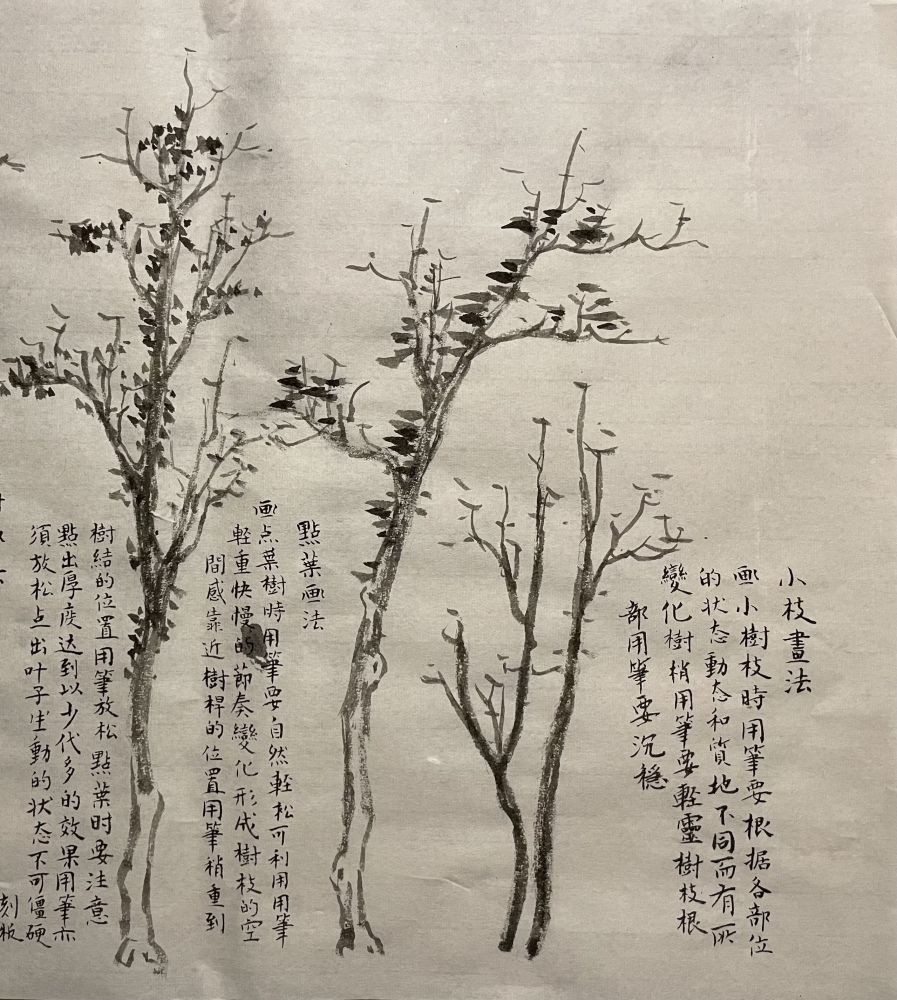 小枝畫法
画小樹枝時用筆要根据各部位
的状态動态和質地不同而有所
變化樹梢用筆要軽靈樹枝根
部用筆要沉穩
點葉画法
画点葉樹時用筆要自然軽松可利用用筆
軽重快慢的節奏變化形成樹枝的空
間感靠近樹桿的位置用筆稍重到
樹結的位置用筆放松點葉时要注意
點出厚度达到以少代多的效果用筆亦
須放松点出叶子生動的状态不可僵硬
刻板